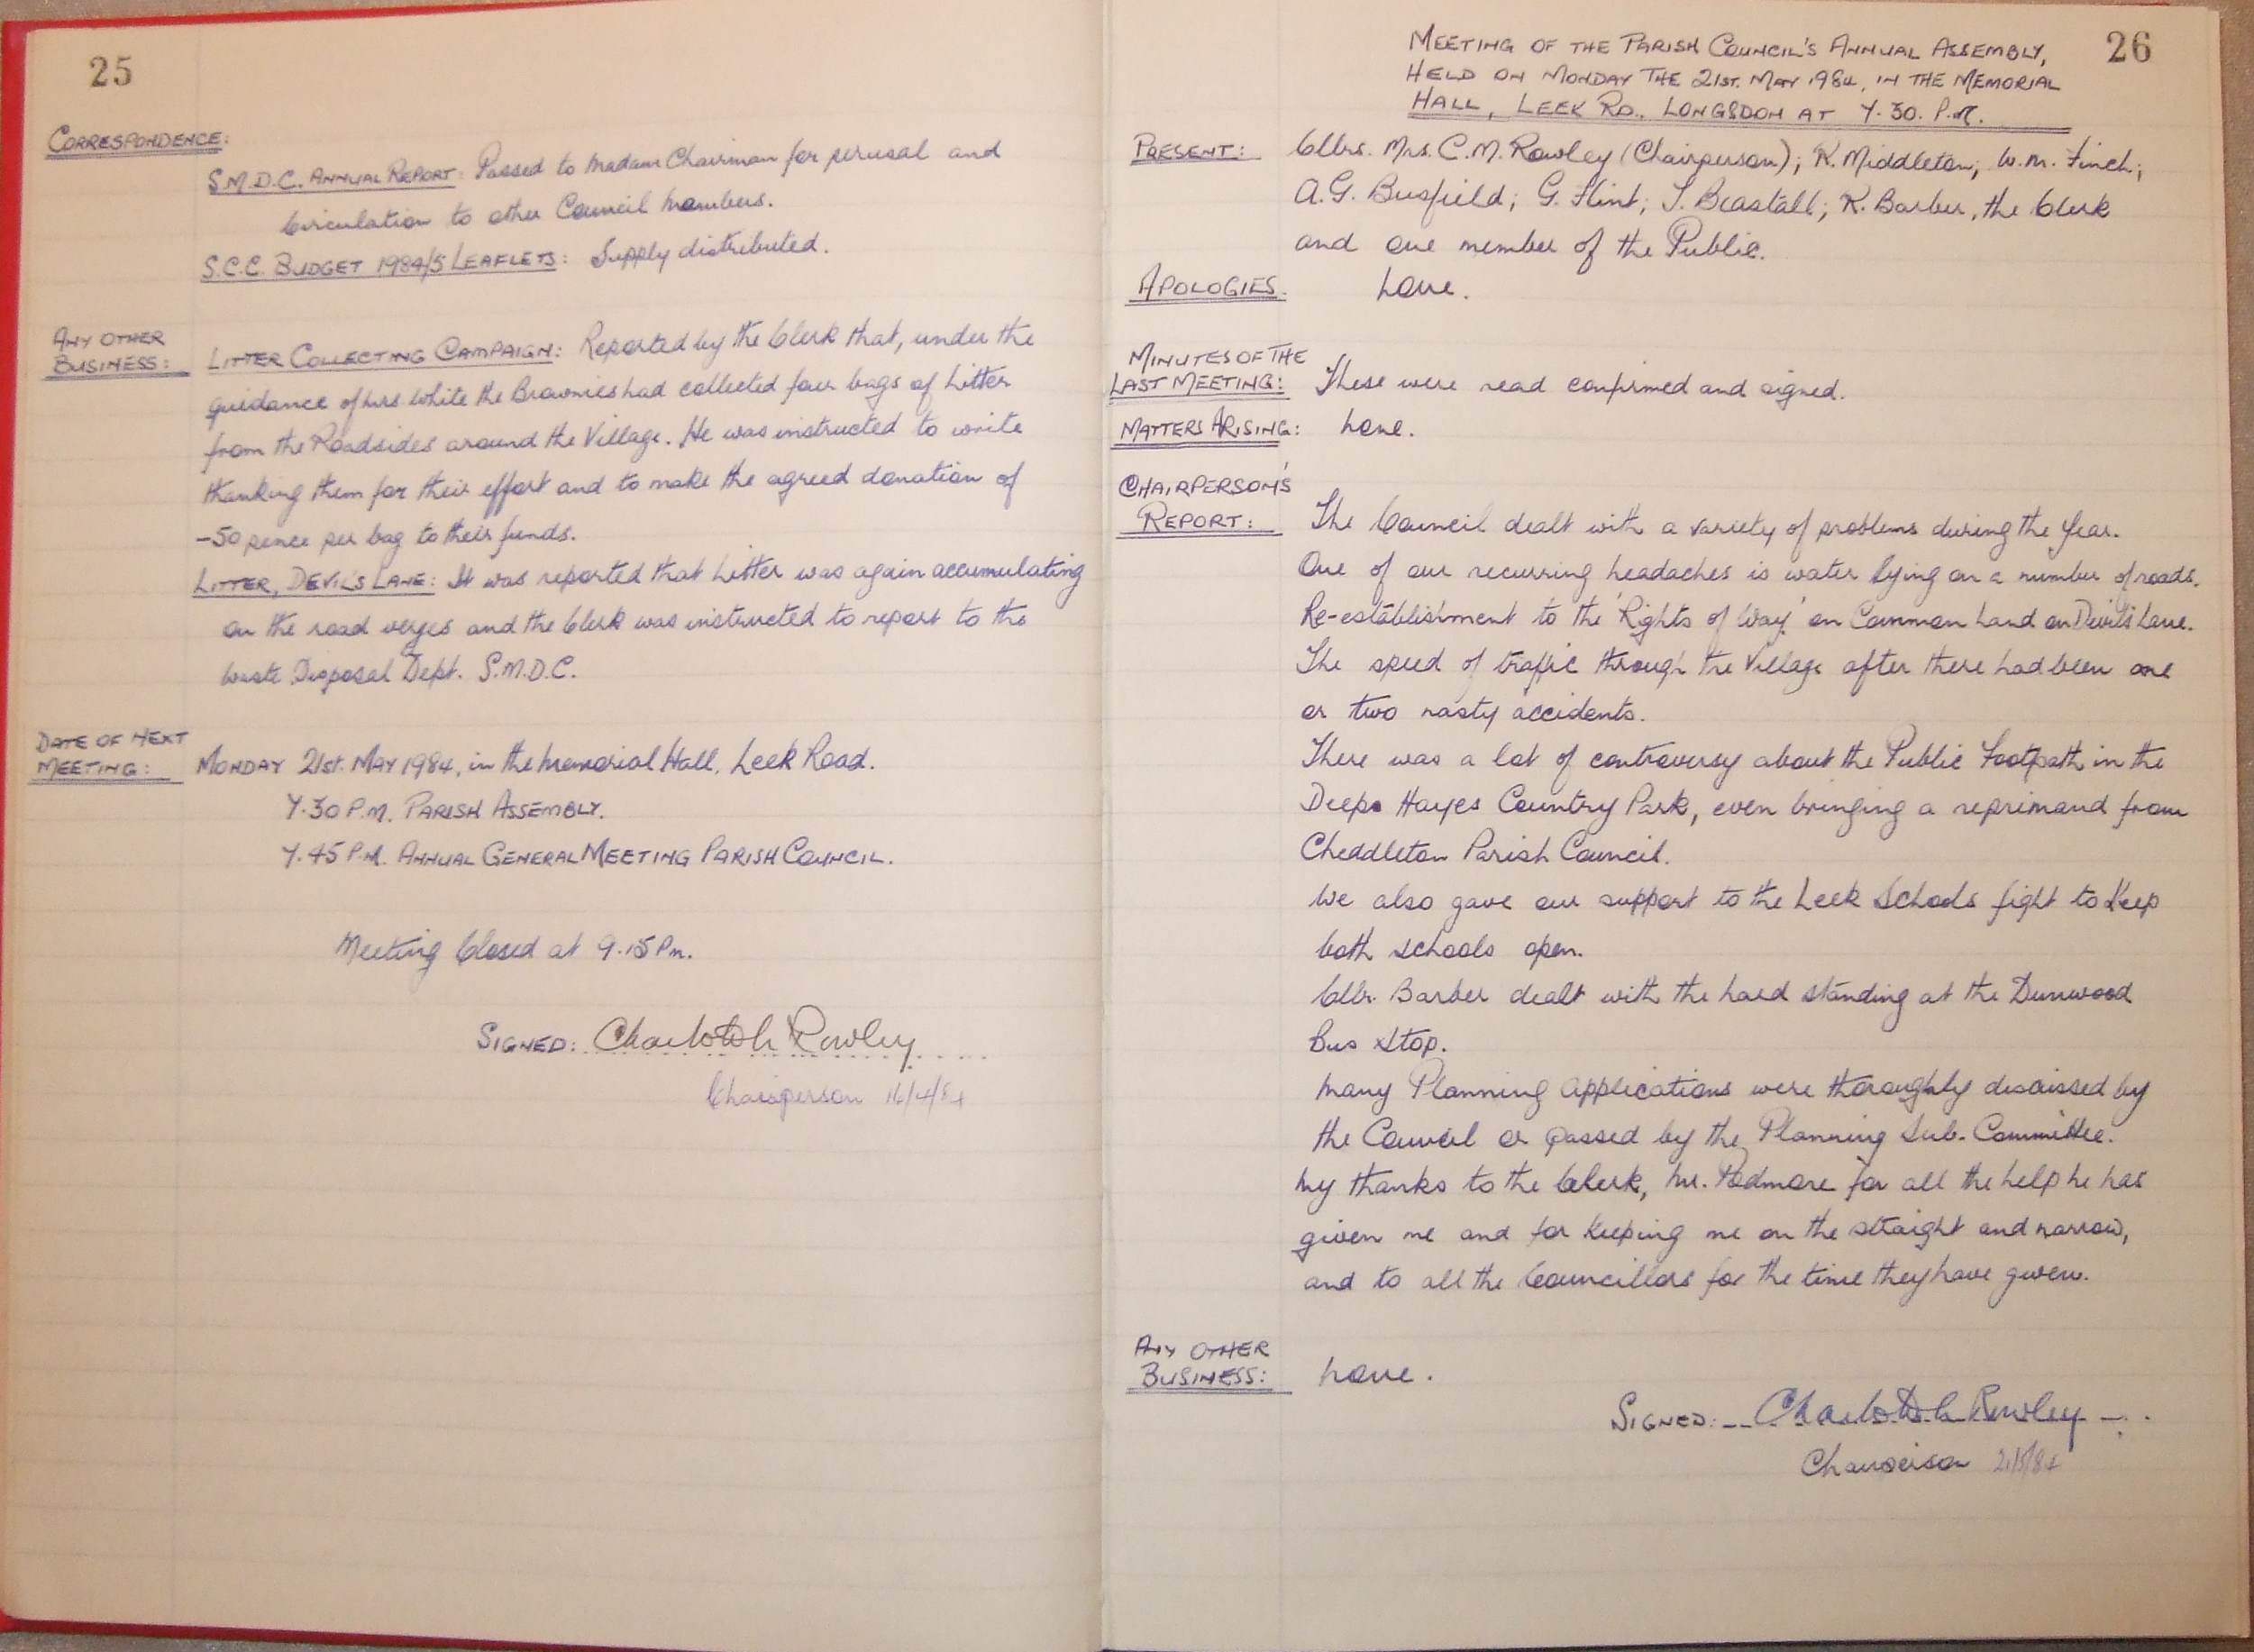 25
CORRESPONDENCE:
S.M.D.C. ANNUAL REPORT: Passed to Madam Chairman for perusal and
Circulation to other Council Members.
S.C.C. BUDGET 1984/5 LEAFLETS: Supply distributed.
ANY OTHER
BUSINESS:
LITTER COLLECTING CAMPAIGN: Reported by the Clerk that, under the
guidance of Mrs White the Brownies had collected four bags of Litter
from the Roadsides around the Village. He was instructed to write
thanking them for their effort and to make the agreed donation of
-50 pence per bag to their funds.
LITTER, DEVIL'S LANE: It was reported that Litter was again accumulating
on the road verges and the Clerk was instructed to report to the
Waste Disposal Dept. S.M.D.C.
DATE OF NEXT
MEETING:
MONDAY 21st. MAY 1984, in the Memorial Hall, Leek Road.
7.30 P.M. PARISH ASSEMBLY.
7.45 P.M. ANNUAL GENERAL MEETING PARISH COUNCIL.
Meeting Closed at 9.15 Pm.
SIGNED: Charlotte Rowley
Chairperson 16/4/84
26
MEETING OF THE PARISH COUNCIL'S ANNUAL ASSEMBLY,
HELD ON MONDAY THE 21ST. MAY 1984, IN THE MEMORIAL
HALL, LEEK RD., LONGSDON AT 7.30. P.M.
PRESENT: Cllrs. Mrs. C.M. Rowley (Chairperson); K. Middleton; W.M. Finch;
A.G. Busfield; G. Flint; J. Beastall; K. Barber, the Clerk
and one member of the Public.
APOLOGIES. None.
MINUTES OF THE
LAST MEETING: These were read confirmed and signed.
MATTERS ARISING: None.
CHAIRPERSON'S
REPORT: The Council dealt with a variety of problems during the Year.
One of our recurring headaches is water lying on a number of roads.
Re-establishment to the 'Rights of Way' on Common Land on Devil's Lane.
The speed of traffic through the Village after there had been one
or two nasty accidents.
There was a lot of controversy about the Public Footpath in the
Deep Hayes Country Park, even bringing a reprimand from
Cheddleton Parish Council.
We also gave our support to the Leek Schools fight to Keep
both schools open.
Cllr. Barber dealt with the hard standing at the Dunwood
Bus Stop.
Many Planning Applications were thoroughly discussed by
the Council or passed by the Planning Sub-Committee.
My thanks to the Clerk, Mr. Podmore for all the help he has
given me and for keeping me on the straight and narrow,
and to all the Councillors for the time they have given.
ANY OTHER
BUSINESS: None.
SIGNED: Charlotte Rowley
Chairperson 21/5/84